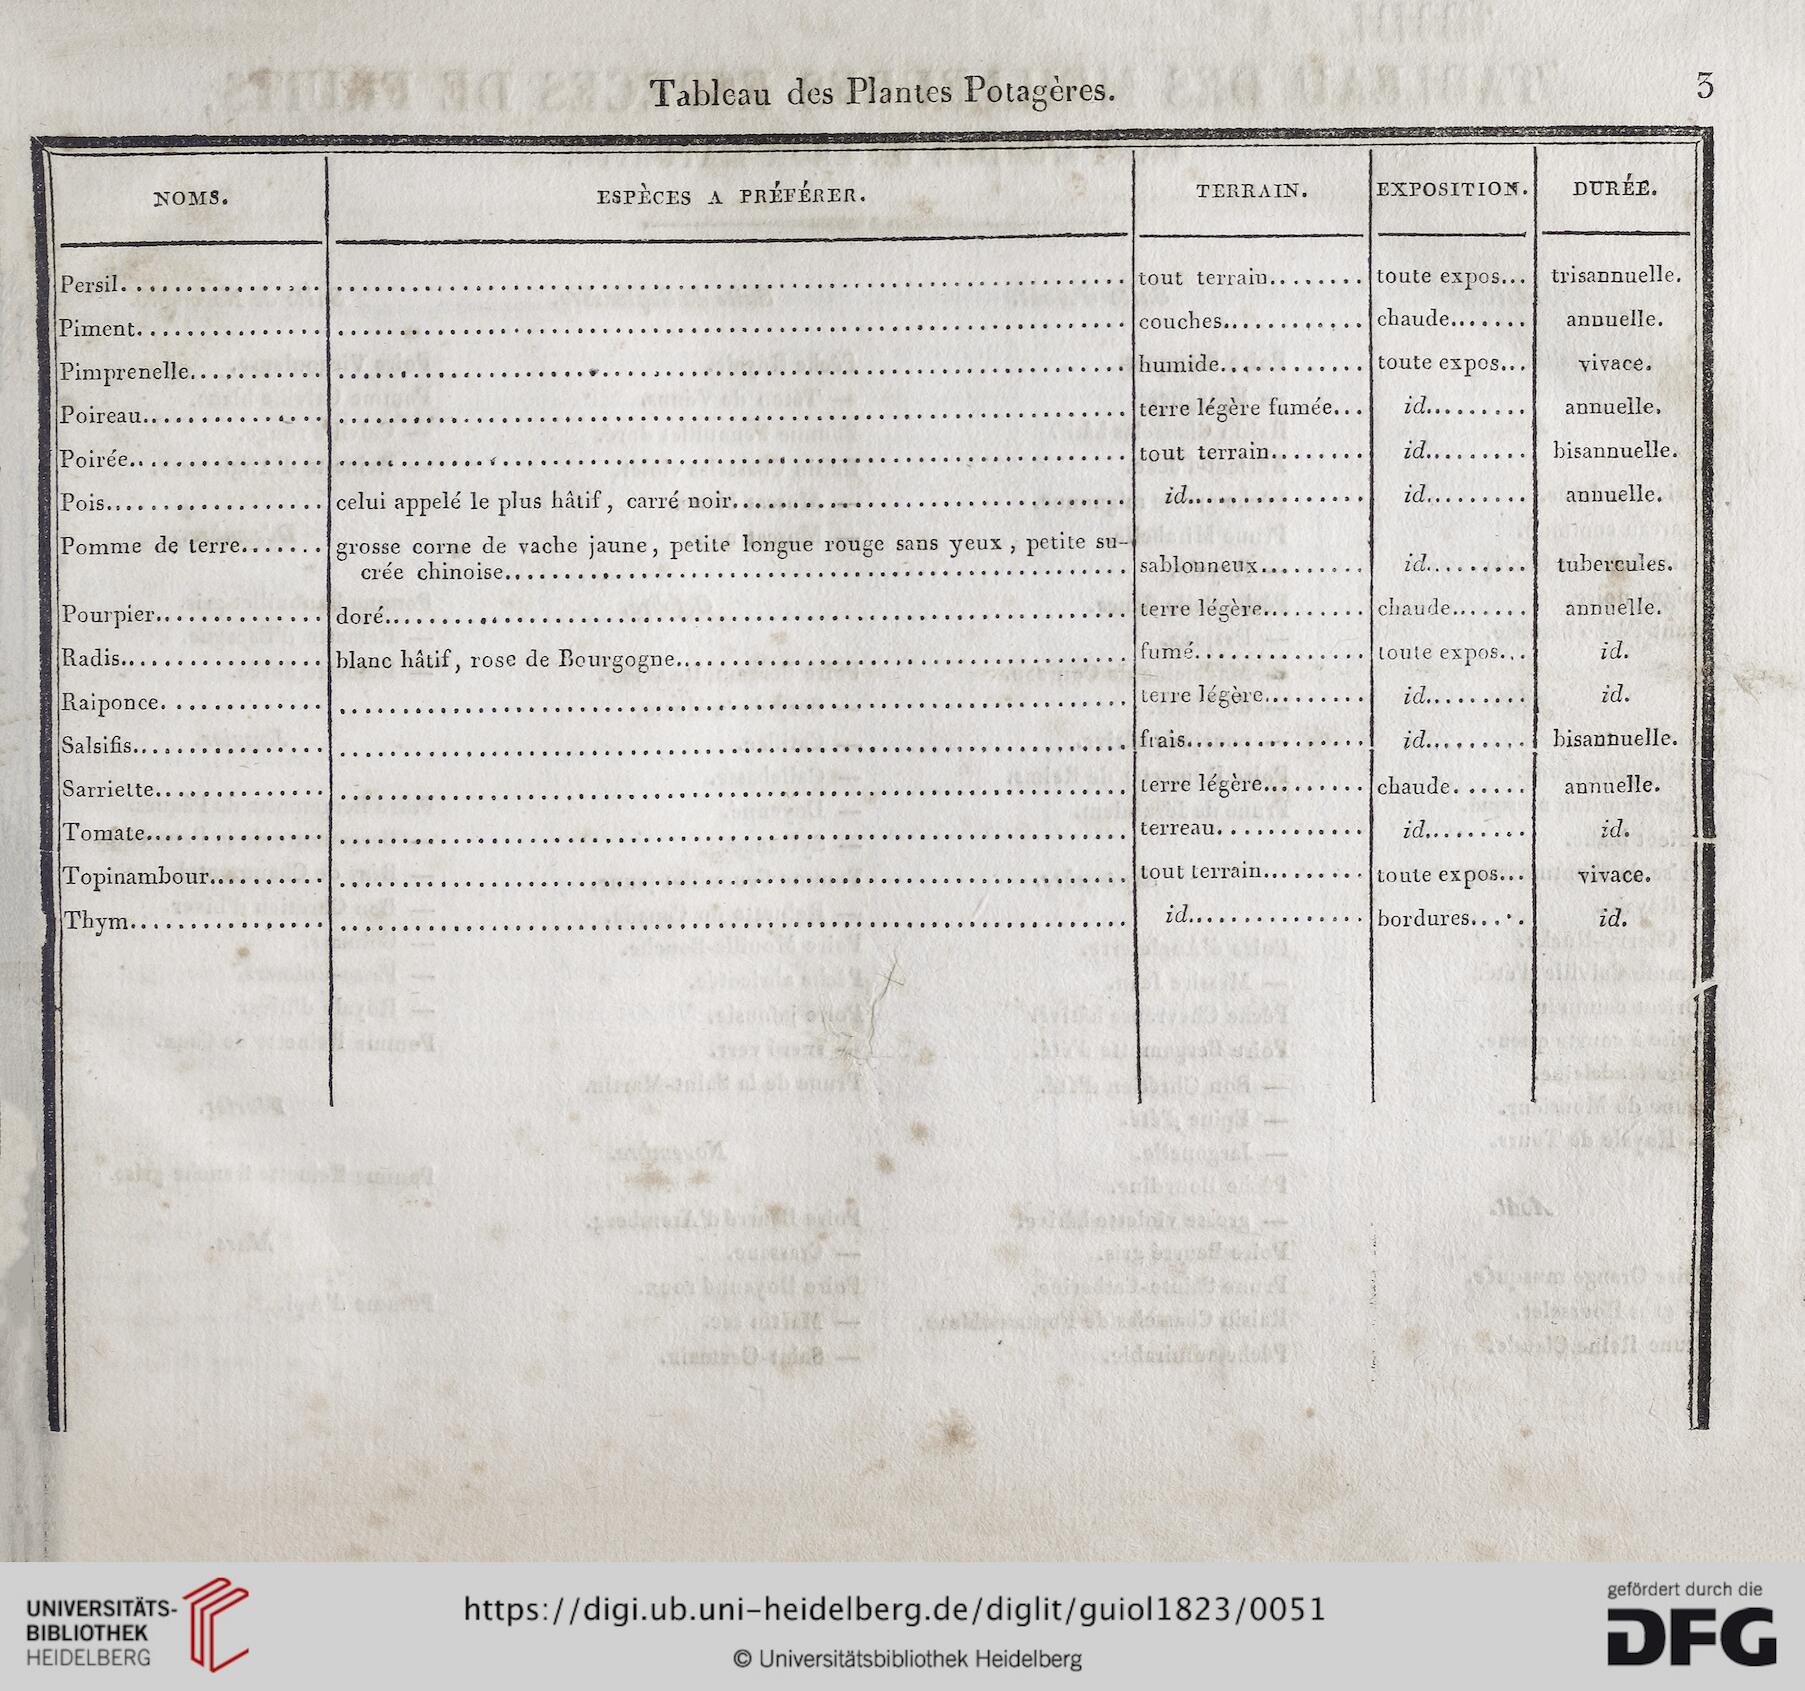 Tableau des Plantes Potagères. 3
NOMS. ESPÈCES A PRÉFÉRER. TERRAIN. EXPOSITION. DURÉE.
Persil. tout terrain. toute expos. trisannuelle.
Piment. couches. chaude. annuelle.
Pimprenelle. humide. toute expos. vivace.
Poireau. terre légère fumée. id. annuelle.
Poirée. tout terrain. id. bisannuelle.
Pois. celui appelé le plus hâtif, carré noir. id. id. annuelle.
Pomme de terre. grosse corne de vache jaune, petite longue rouge sans yeux, petite su-
crée chinoise. sablonneux. id. tubercules.
Pourpier. doré. terre légère. chaude. annuelle.
Radis. blanc hâtif, rose de Bourgogne. fumé. toute expos. id.
Raiponce. terre légère. id. id.
Salsifis. frais. id. bisannuelle.
Sarriette. terre légère. chaude. annuelle.
Tomate. terreau. id. id.
Topinambour. tout terrain. toute expos. vivace.
Thym. id. bordures. id.
UNIVERSITÄTS-
BIBLIOTHEK
HEIDELBERG
https://digi.ub.uni-heidelberg.de/diglit/guiol1823/0051
© Universitätsbibliothek Heidelberg
gefördert durch die
DFG